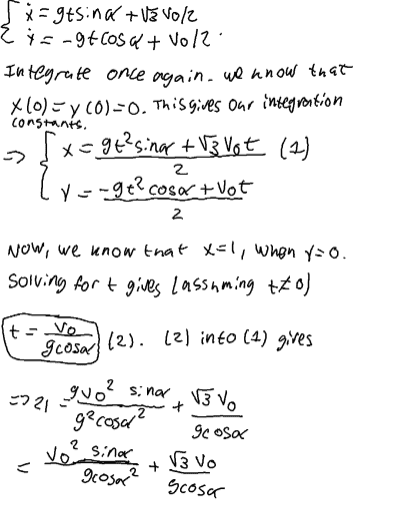 { ẋ = gtsinα + √3 v0/2
ẏ = -gtcosα + v0/2.
Integrate once again. we know that
x(0)=y(0)=0. This gives our integration
constants.
=> { x = (gt²sinα + √3 v0t)/2 (1)
y = (-gt²cosα + v0t)/2
Now, we know that x=l, when y=0.
Solving for t gives (assuming t≠0)
t = v0/(gcosα) (2). (2) into (1) gives
=> 2l = gv0² sinα/(g²cosα²) + √3 v0/(gcosα)
= v0² sinα/(gcosα²) + √3 v0/(gcosα)